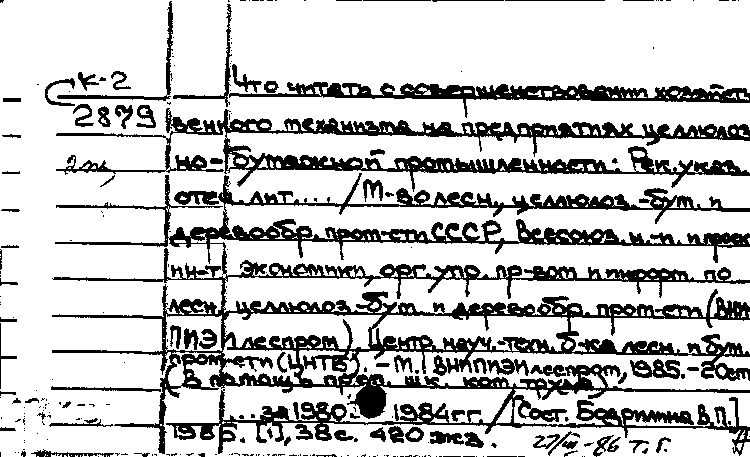 К-2
Что читать о совершенствовании хозяйст-
2879
венного механизма на предприятиях целлюлоз
но-бумажной промышленности: Рек. указ.
отеч. лит.... / М-во лесн., целлюлоз.-бум. и
деревообр. пром-сти СССР, Всесоюз. н.-и. и проект
ин-т экономики, орг. упр. пр-вом и информ. по
лесн., целлюлоз.-бум. и деревообр. пром-сти (ВНИ
ПИЭИлеспром), Центр. науч.-техн. б-ка лесн. и бум.
пром-сти (ЦНТБ). - М.: ВНИПИЭИлеспром, 1985.-20см
(В помощь проп. шк. ком. труда)
... за 1980 1984 гг. / [Сост. Бодрилина В.П.]
1985. [1], 38 с. 420 экз.
27/III-86 т. г.